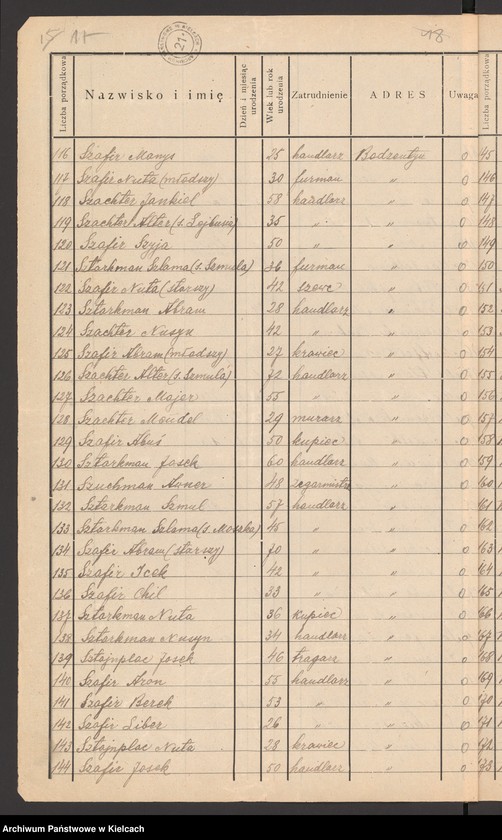 15 11
21
48
Liczba porządkowa | Nazwisko i imię | Dzień i miesiąc urodzenia | Wiek lub rok urodzenia | Zatrudnienie | ADRES | Uwaga | Liczba porządkowa
116 Szafir Manys 25 handlarz Bodzentyn 0 145
117 Szafir Nuta (młodszy) 30 furman " 0 146
118 Szachter Jankiel 58 handlarz " 0 147
119 Szachter Alter (s. Lejbusia) 35 " " 0 148
120 Szafir Szyja 50 " " 0 149
121 Sztarkman Szlama (s. Szmula) 36 furman " 0 150
122 Szafir Nuta (starszy) 42 szewc " 0 151
123 Sztarkman Abram 28 handlarz " 0 152
124 Szachter Nusyn 42 " " 0 153
125 Szafir Abram (młodszy) 27 krawiec " 0 154
126 Szachter Alter (s. Szmula) 72 handlarz " 0 155
127 Szachter Majer 55 " " 0 156
128 Szachter Mendel 29 murarz " 0 157
129 Szafir Abuś 50 kupiec " 0 158
130 Sztarkman Josek 60 handlarz " 0 159
131 Szuchman Avner 48 zegarmistrz " 0 160
132 Sztarkman Szmul 57 handlarz " 0 161
133 Sztarkman Szlama (s. Moszka) 45 " " 0 162
134 Szafir Abram (starszy) 70 " " 0 163
135 Szafir Icek 42 " " 0 164
136 Szafir Chil 33 " " 0 165
137 Sztarkman Nuta 36 kupiec " 0 166
138 Sztarkman Nusyn 34 handlarz " 0 167
139 Sztejnplac Josek 46 tragarz " 0 168
140 Szafir Aron 55 handlarz " 0 169
141 Szafir Berek 53 " " 0 170
142 Szafir Liber 26 " " 0 171
143 Sztejnplac Nuta 28 krawiec " 0 172
144 Szafir Josek 50 handlarz " 0 173
Archiwum Państwowe w Kielcach